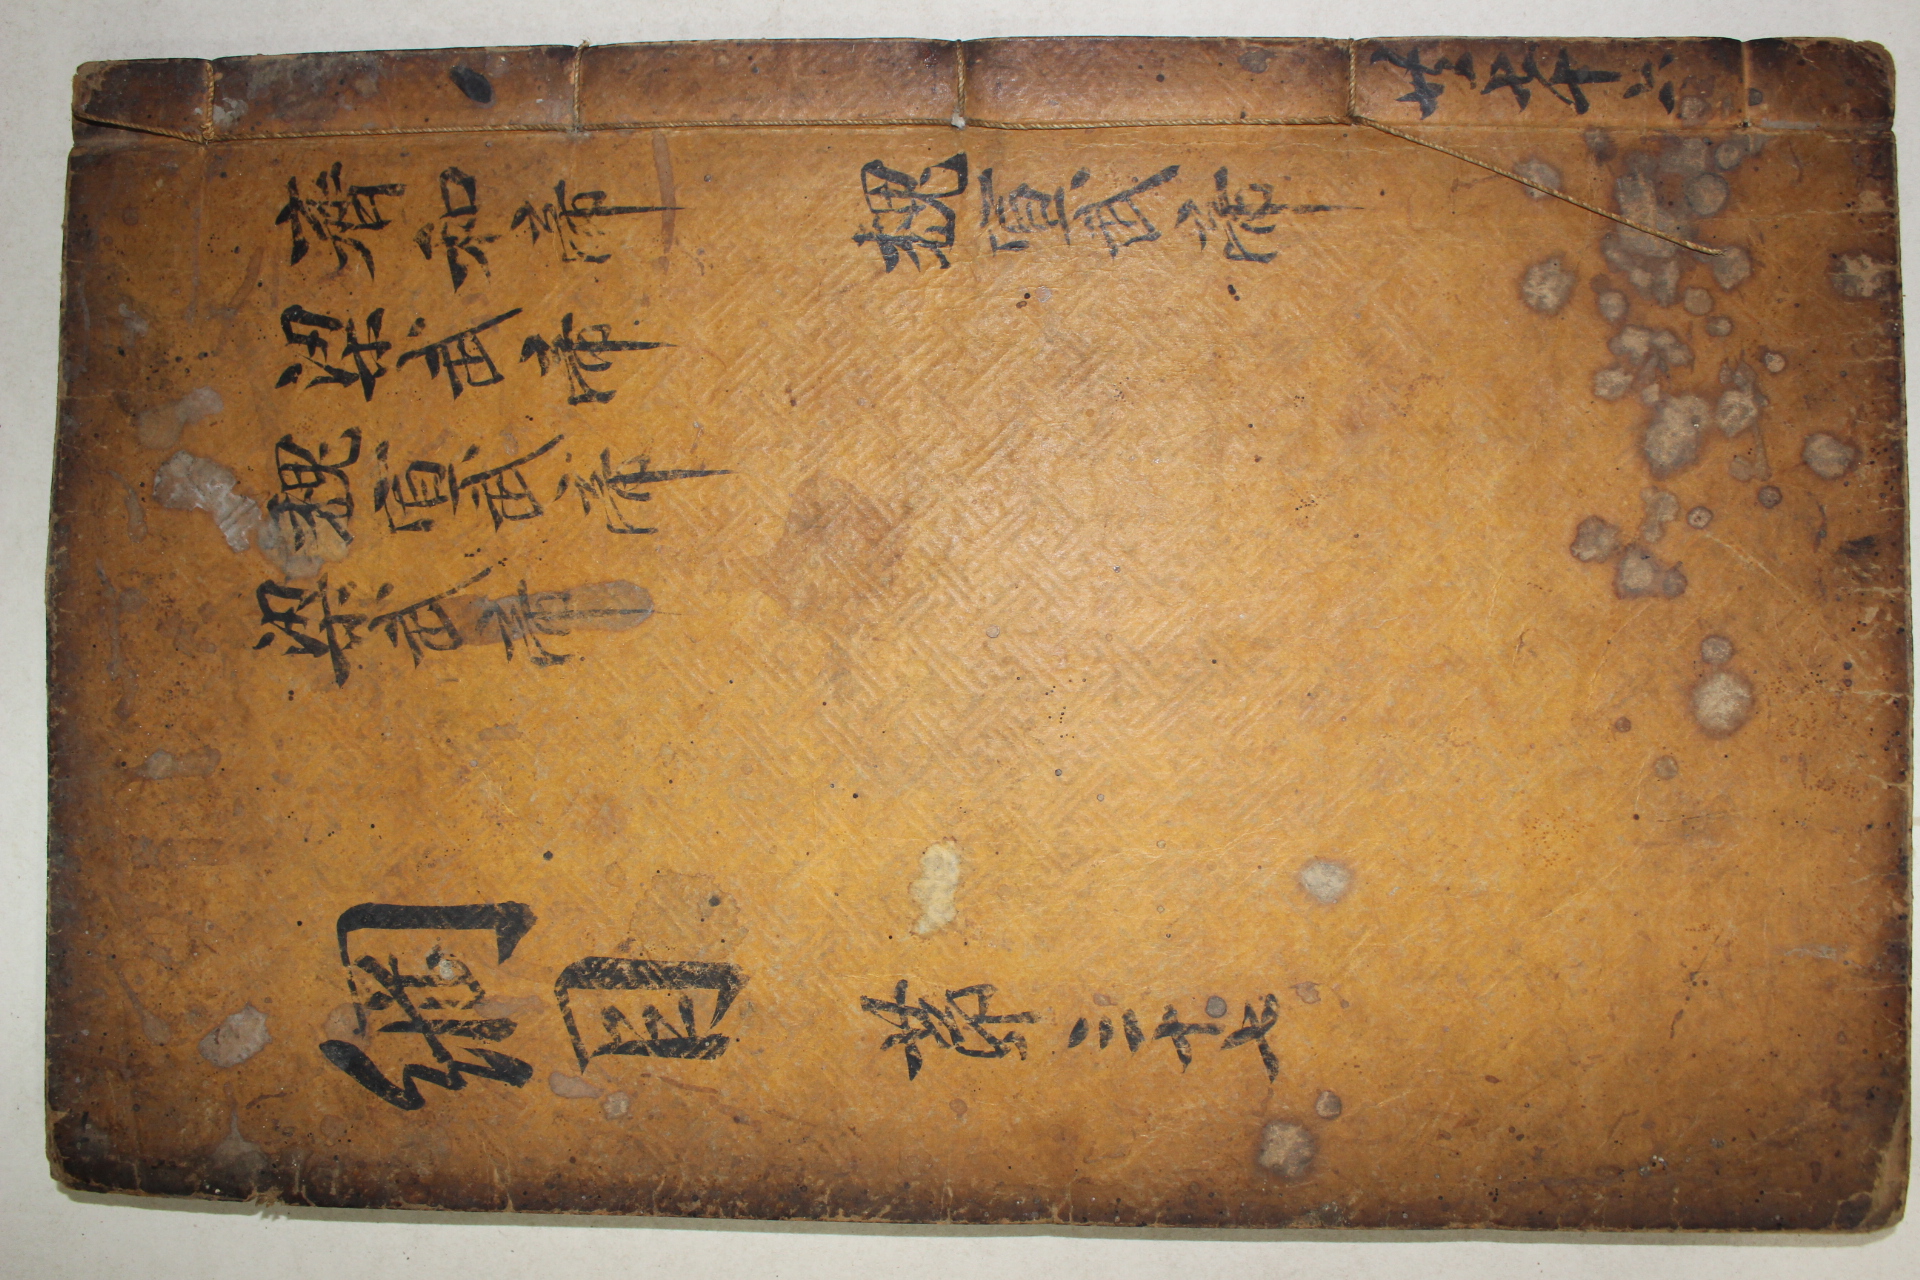 共七十六
齊和帝 魏宣武帝
梁武帝
魏宣武帝
梁武帝
綱目 苐三十七